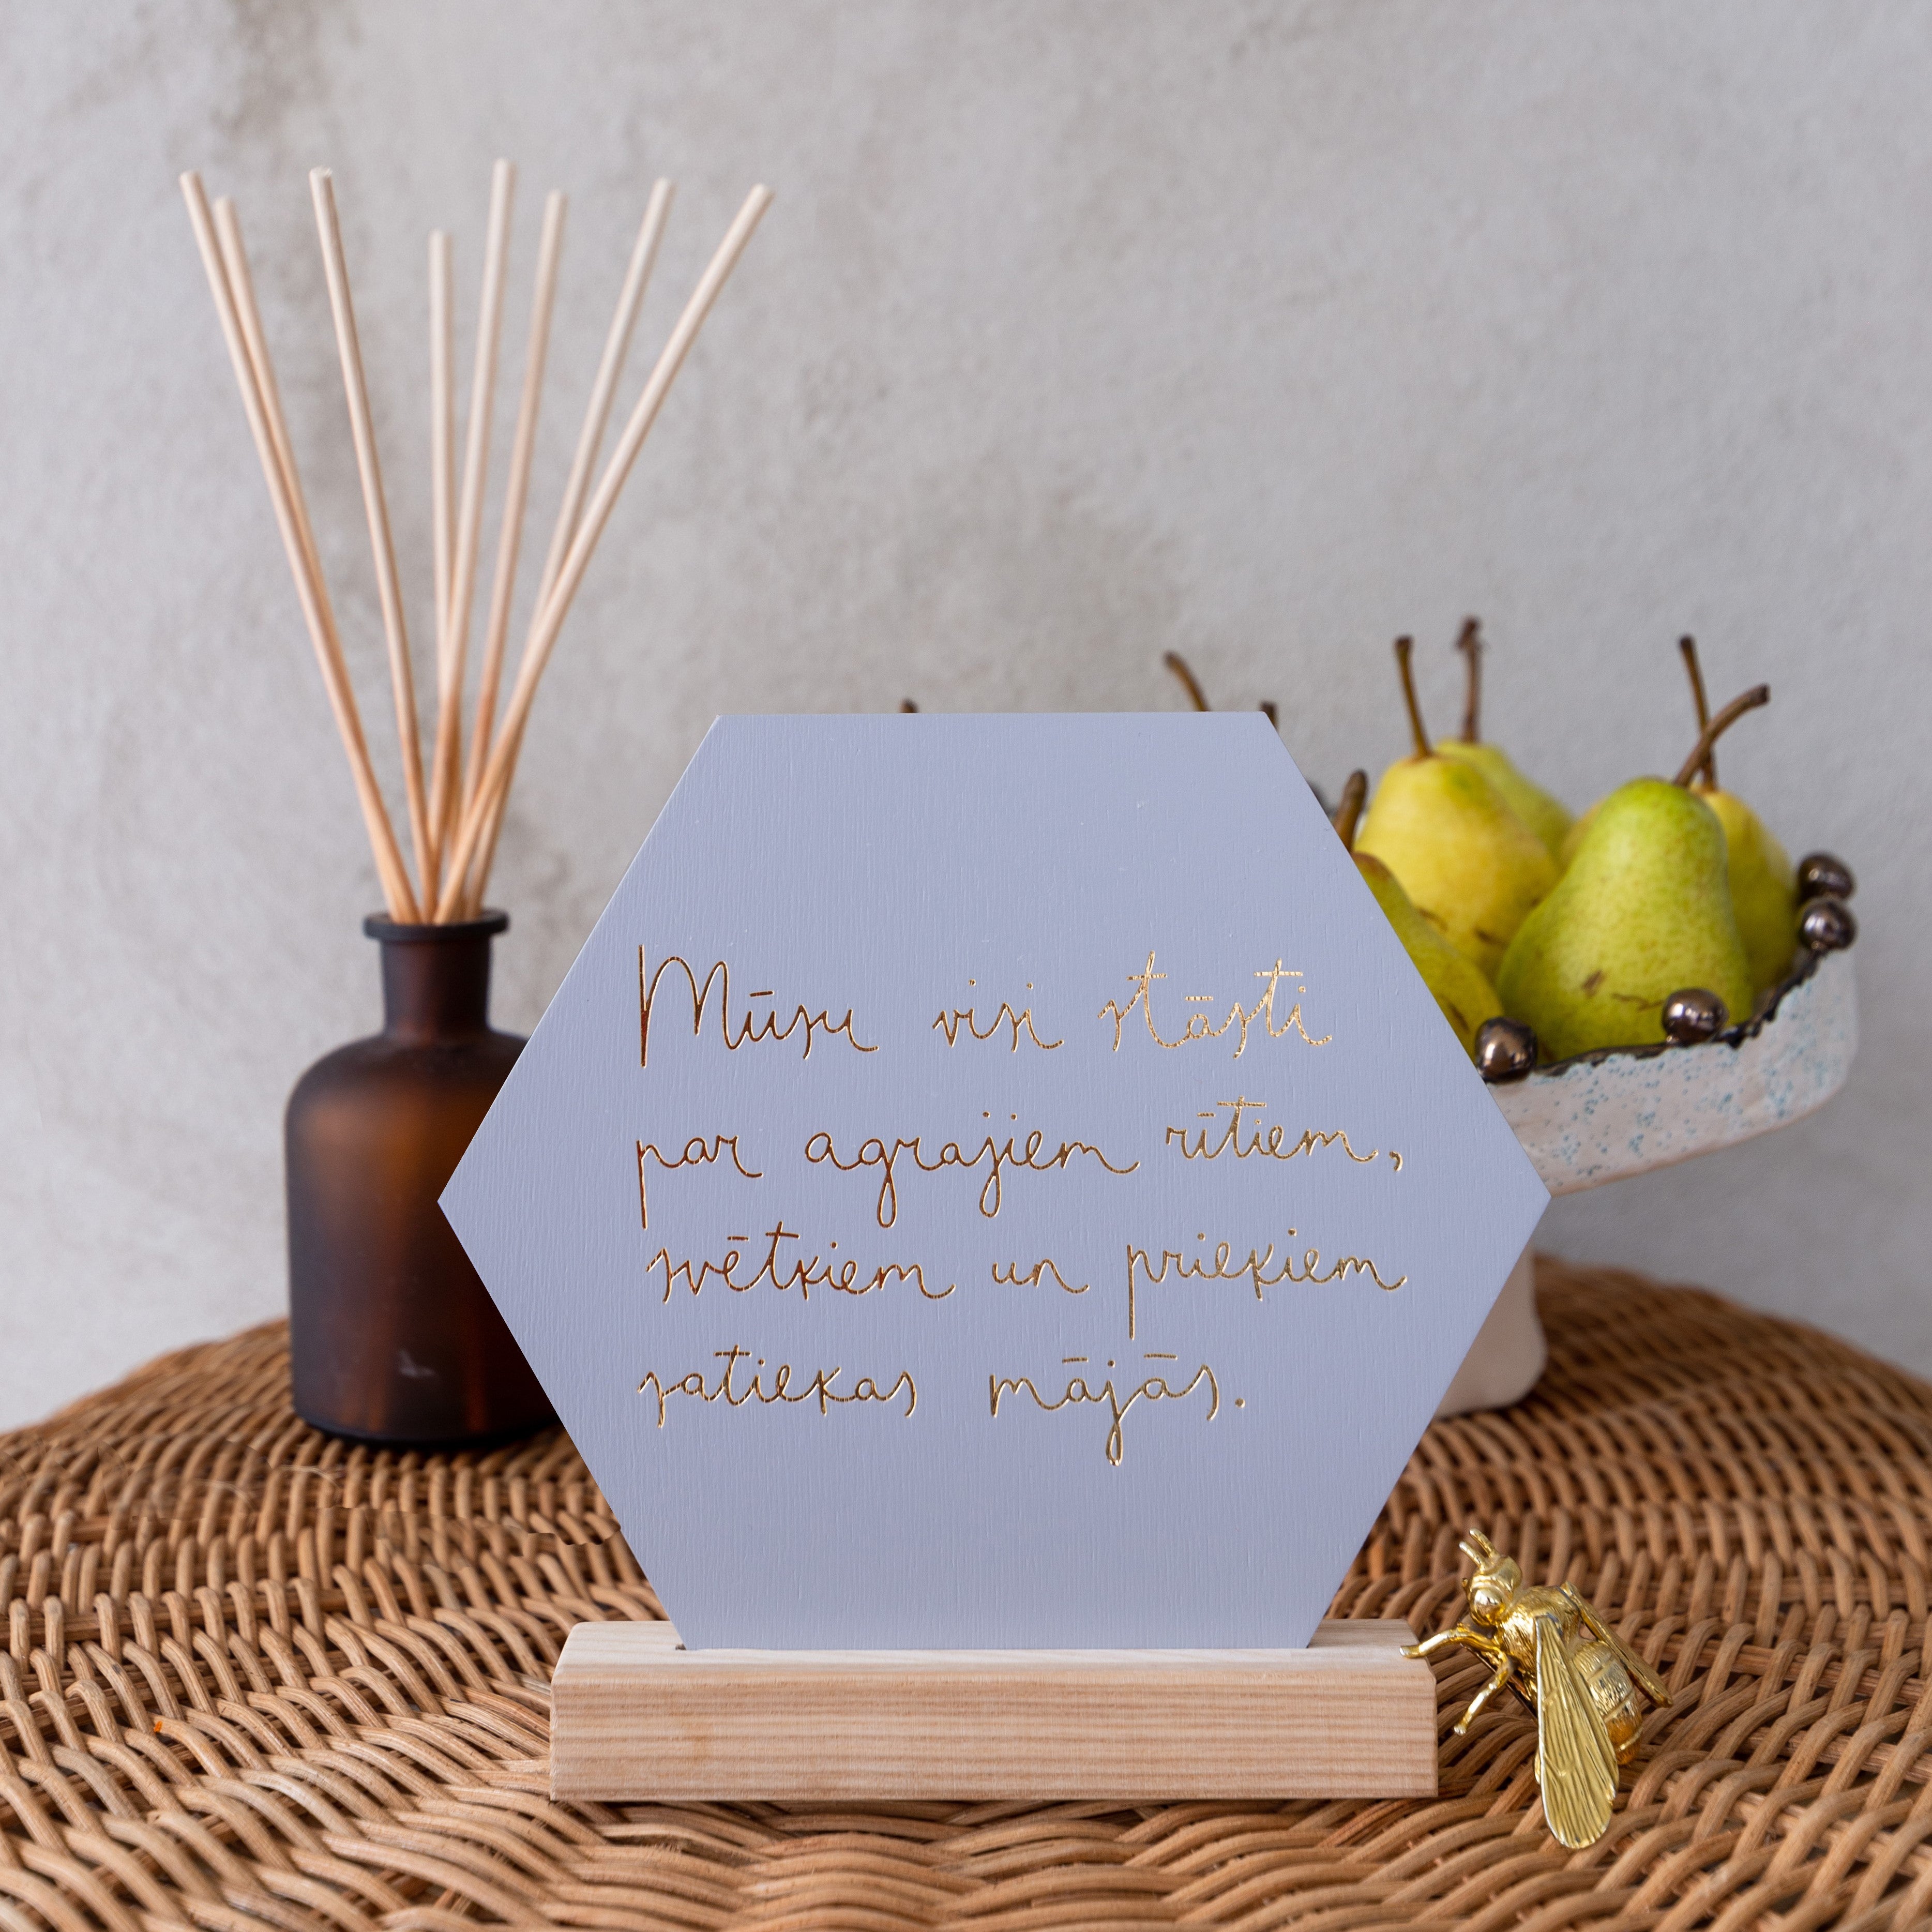 Mūsu visi stāsti
par agrajiem rītiem,
svētkiem un priekiem
satiekas mājās.